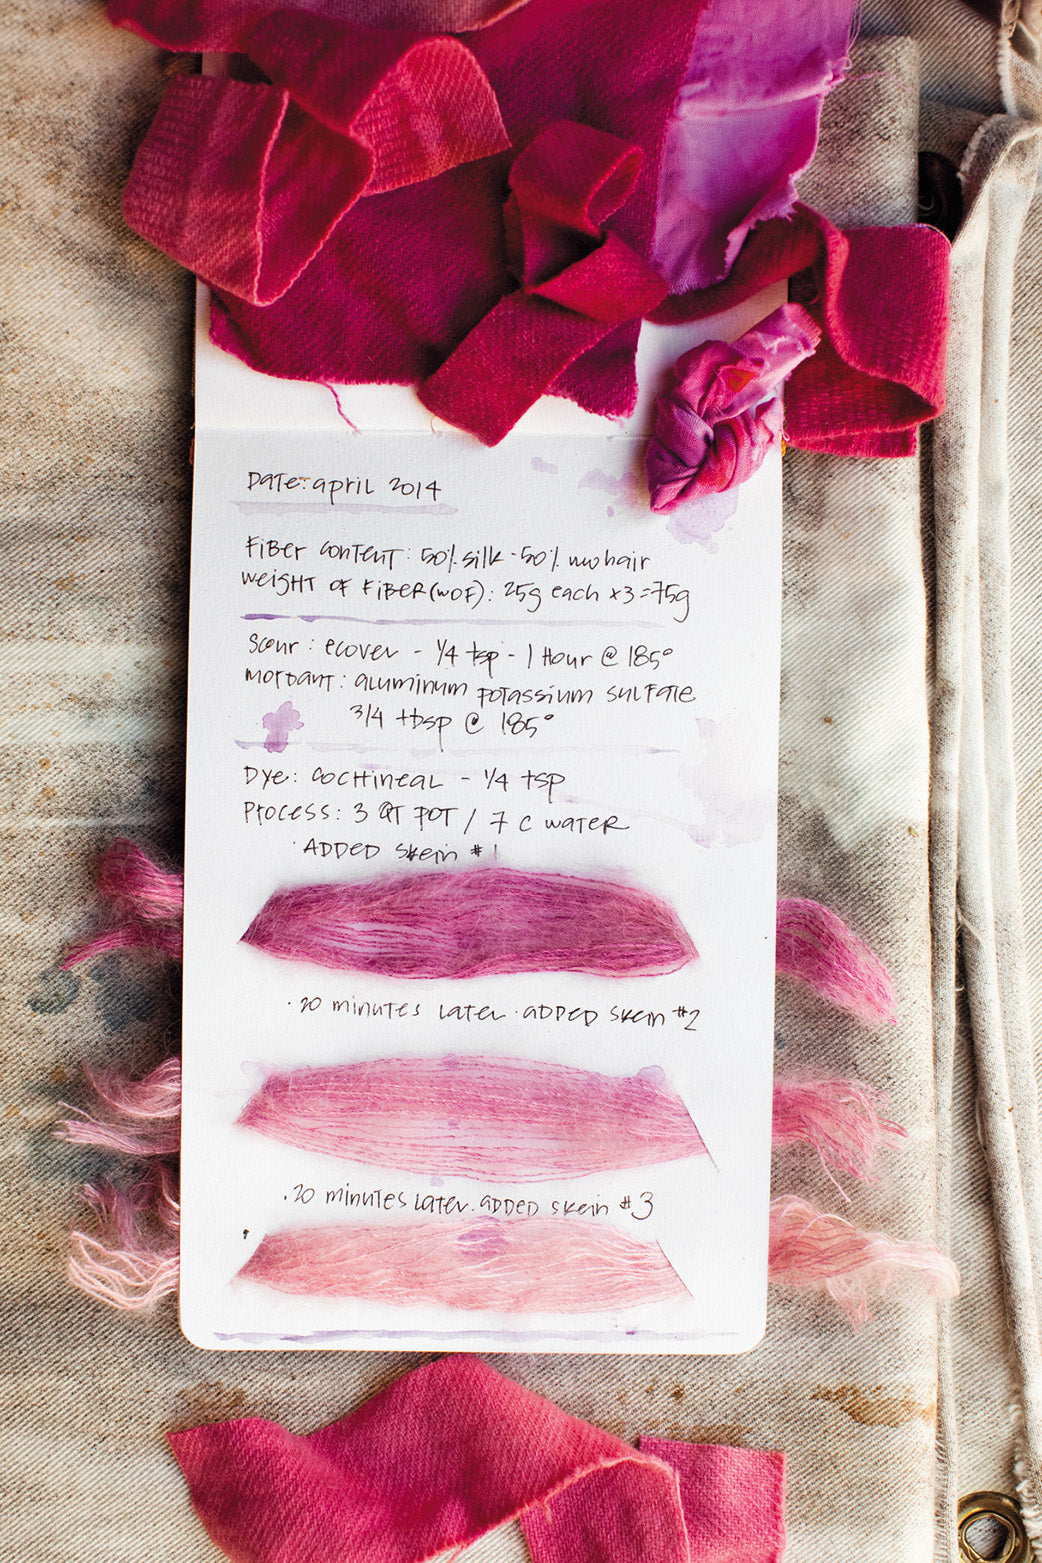 Date: april 2014
Fiber content: 50% silk - 50% mohair
weight of Fiber (WOF): 25g each x3 = 75g
Scour: ecover - 1/4 tsp - 1 Hour @ 185°
mordant: aluminum potassium sulfate
3/4 tbsp @ 185°
Dye: cochineal - 1/4 tsp
Process: 3 QT POT / 7 C water
· Added skein #1
· 20 minutes later · added skein #2
· 20 minutes later. added skein #3